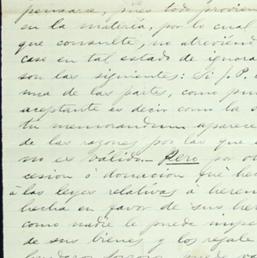 pensarse, pues todo provien
en la materia, por lo cual
que consulte, no atreviend
case en tal estado de ignora
son las siguientes: Si J.P.
una de las partes, como pu
aceptante es decir como la s
tu memorandum aparece
de las razones por las que
no es valido. Pero por o
cesion ó donacion que he
á las leyes relativas á heren
hecha en favor de sus her
como nadie le puede impe
de sus bienes y los regale